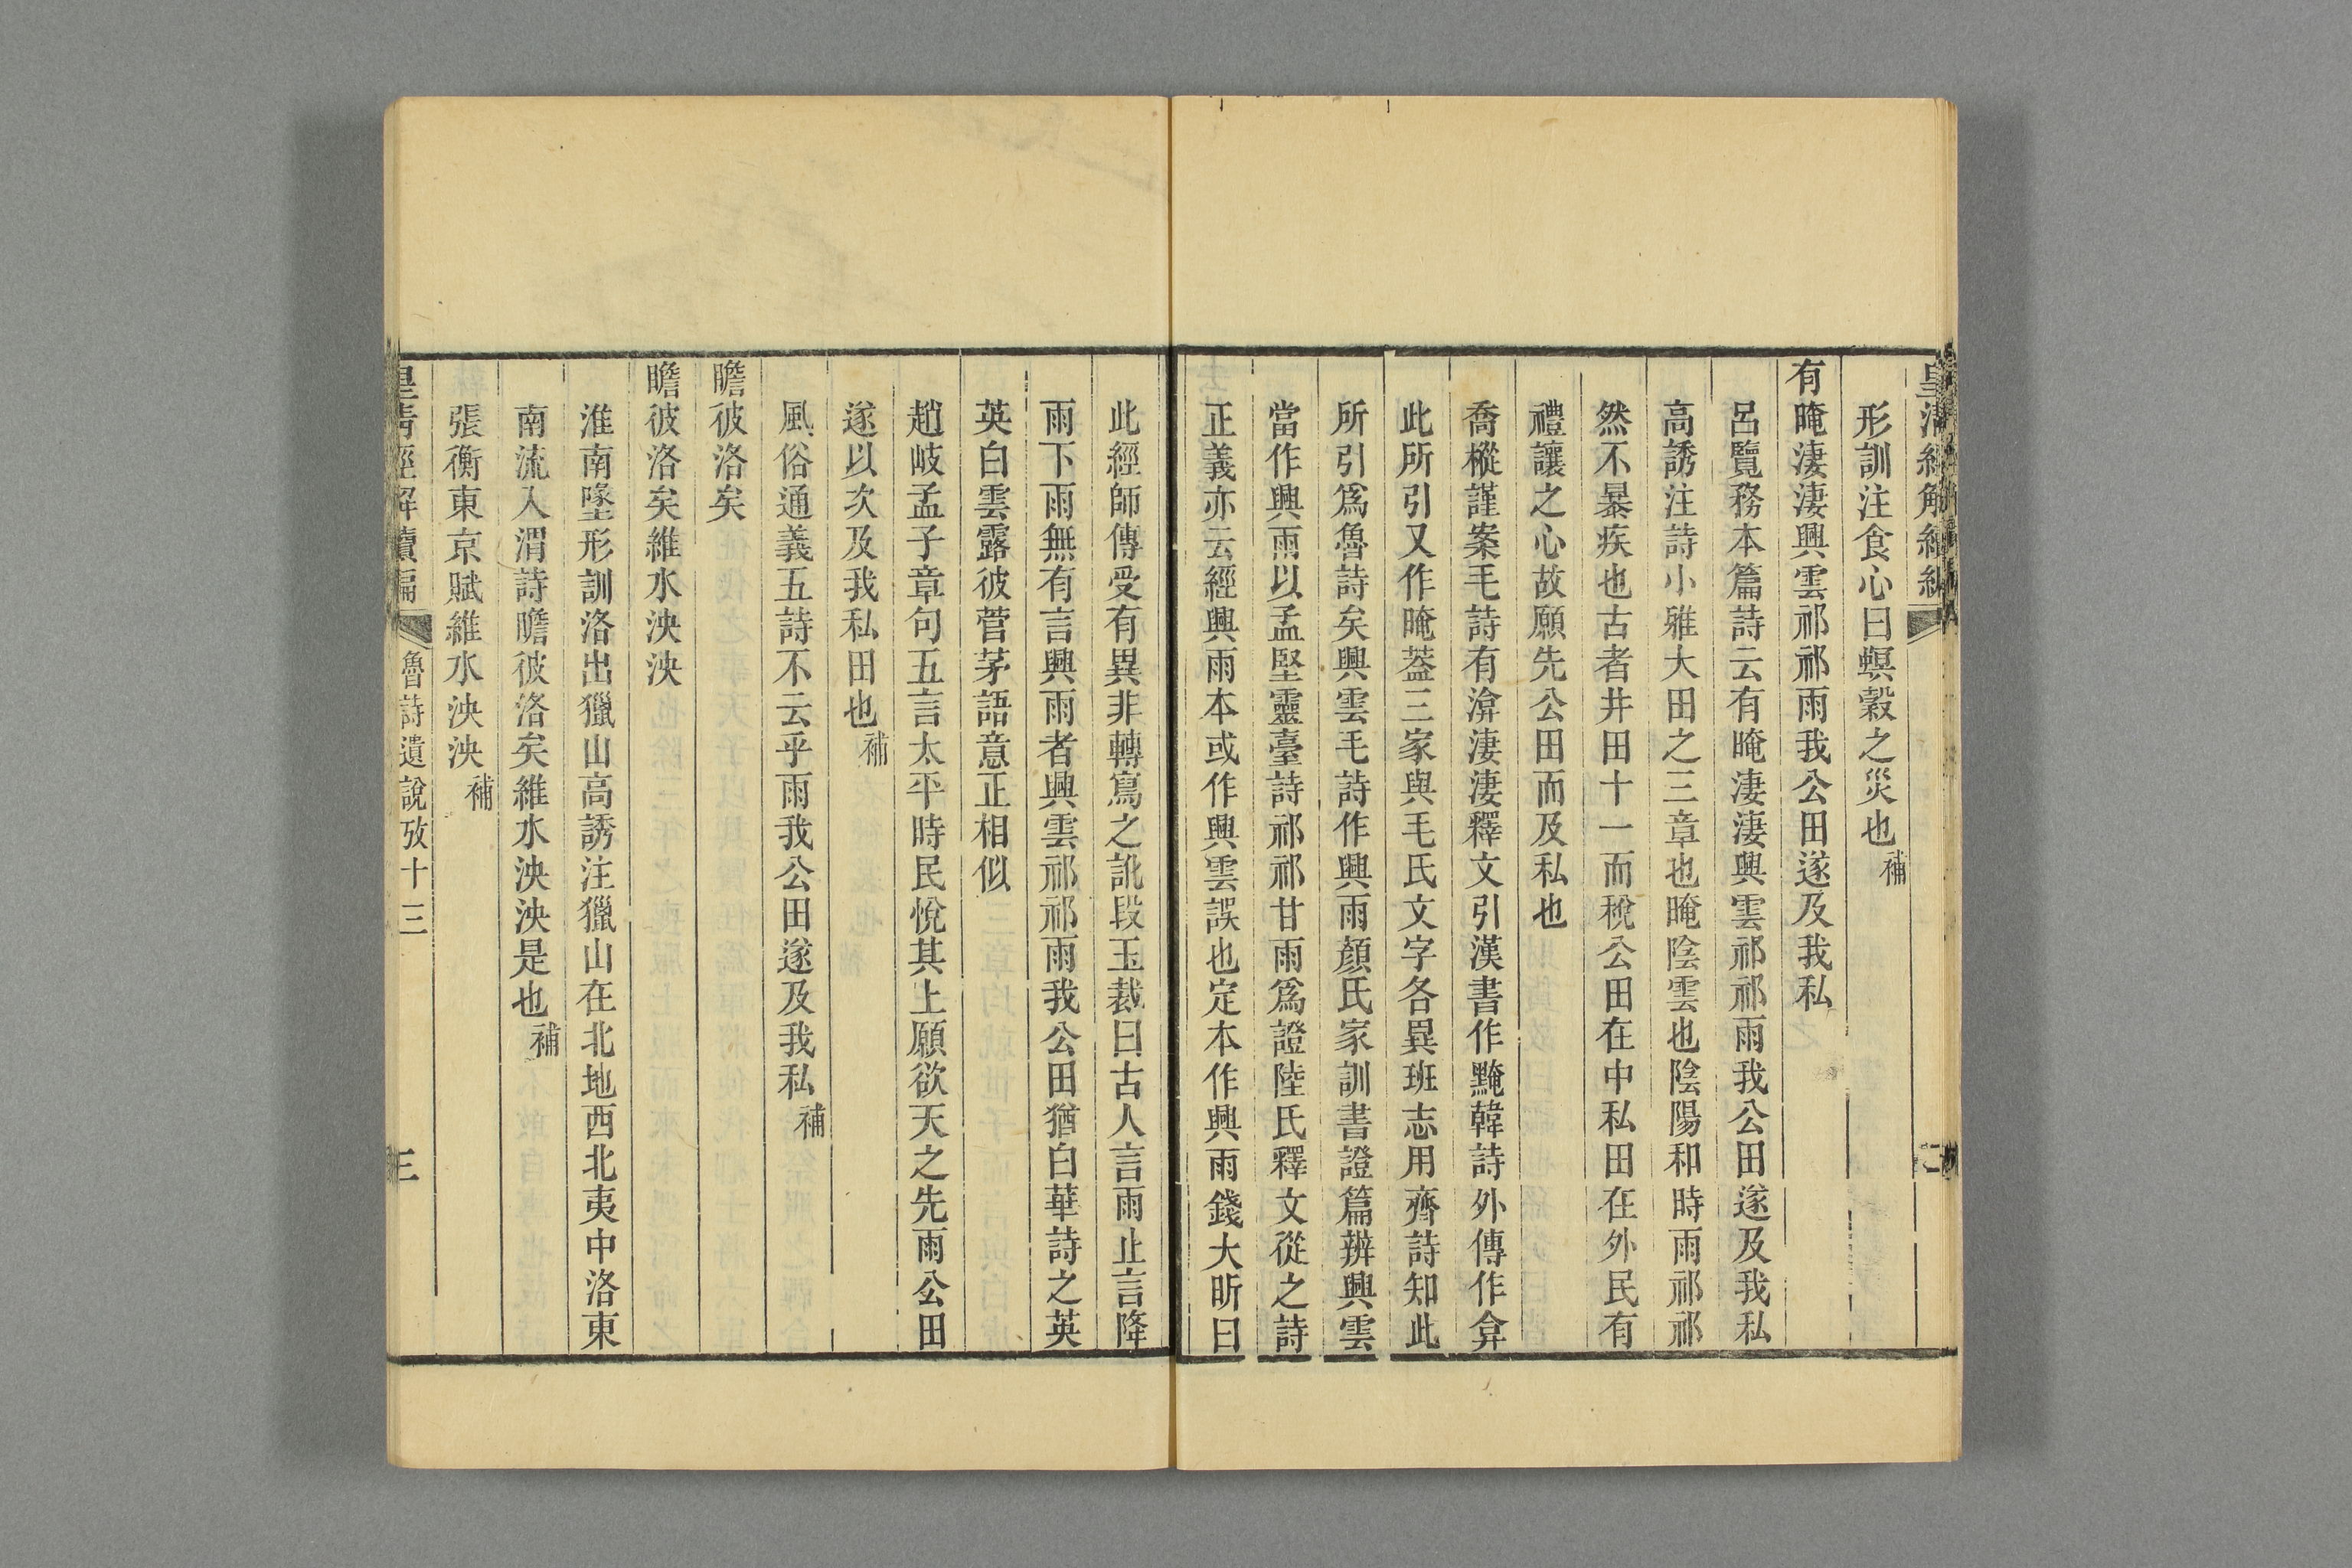 皇清經解續編
二
形訓注食心曰螟穀之災也補
有晻淒淒興雲祁祁雨我公田遂及我私
呂覽務本篇詩云有晻淒淒興雲祁祁雨我公田遂及我私
高誘注詩小雅大田之三章也晻陰雲也陰陽和時雨祁祁
然不暴疾也古者井田十一而稅公田在中私田在外民有
禮讓之心故願先公田而及私也
喬樅謹案毛詩有渰淒淒釋文引漢書作黤韓詩外傳作弇
此所引又作晻葢三家與毛氏文字各異班志用齊詩知此
所引爲魯詩矣興雲毛詩作興雨顏氏家訓書證篇辨興雲
當作興雨以孟堅靈臺詩祁祁甘雨爲證陸氏釋文從之詩
正義亦云經興雨本或作興雲誤也定本作興雨錢大昕曰
此經師傳受有異非轉寫之訛段玉裁曰古人言雨止言降
雨下雨無有言興雨者興雲祁祁雨我公田猶白華詩之英
英白雲露彼菅茅語意正相似
趙岐孟子章句五言太平時民悅其上願欲天之先雨公田
遂以次及我私田也補
風俗通義五詩不云乎雨我公田遂及我私補
瞻彼洛矣
瞻彼洛矣維水泱泱
淮南墬形訓洛出獵山高誘注獵山在北地西北夷中洛東
南流入渭詩瞻彼洛矣維水泱泱是也補
張衡東京賦維水泱泱補
皇清經解續編
魯詩遺說攷十三
三